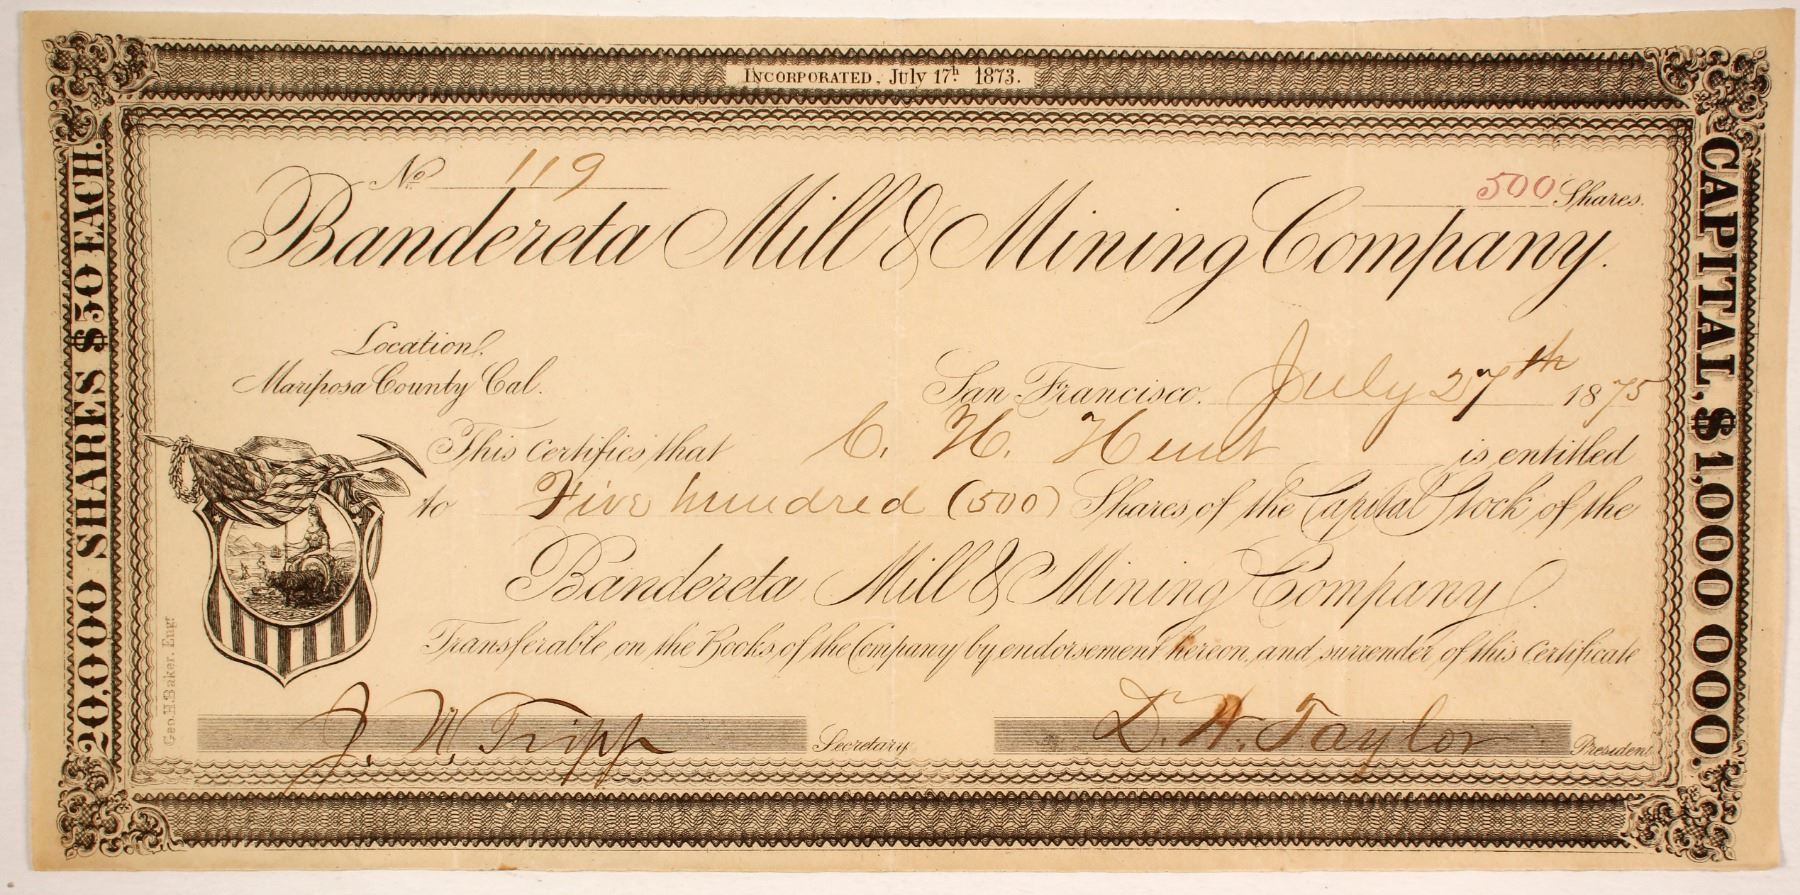 INCORPORATED. July 17th 1873.
No 119
500 Shares.
Bandereta Mill & Mining Company.
Location.
Mariposa County Cal.
San Francisco. July 27th 1875
This certifies that C. H. Hunt is entitled
to Five hundred (500) Shares of the Capital Stock of the
Bandereta Mill & Mining Company.
Transferable on the Books of the Company by endorsement hereon and surrender of this Certificate
J. N. Tripp Secretary
D. W. Taylor President
Geo. H. Baker. Engr
20,000 SHARES $50 EACH.
CAPITAL, $1,000 000.